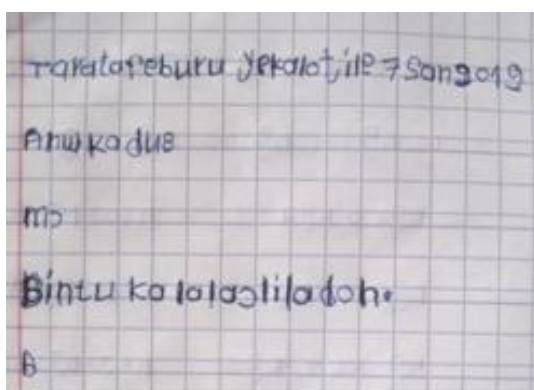 Tarata feburu yekalo tile 7 San 2019
Anw ka du
mɔ
Bintu ka lalaɔlila doh.
B